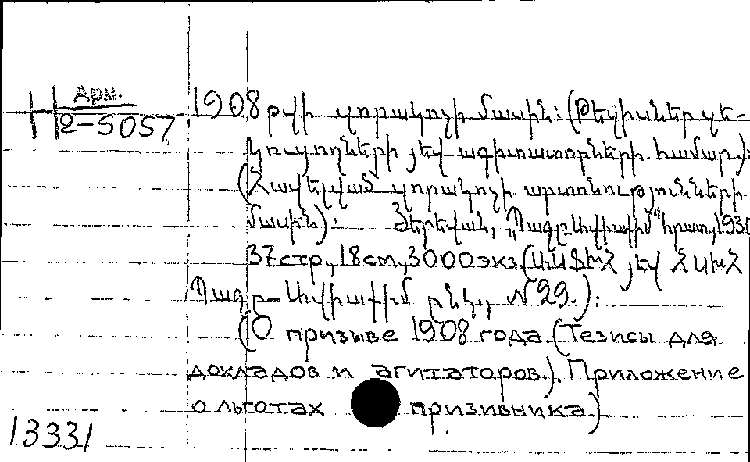 Арм.
Н 2-5057
1908 թվի զորակոչի մասին: (Թեզիսներ զե-
կուցողների յեվ ագիտատորների համար):
(Հավելված զորակոչի արտոնությունների
մասին): Յերեվան, "Պազ.Ավիաքիմ" հրատ., 193
37 стр., 18 см., 3000 экз. (ԱԱՖԽՀ յեվ ՀՍԽՀ
Պազ-Ավիաքիմ ընկ., № 29.):
(О призыве 1908 года. (Тезисы для
докладов и агитаторов.). Приложение
о льготах призивника)
13331